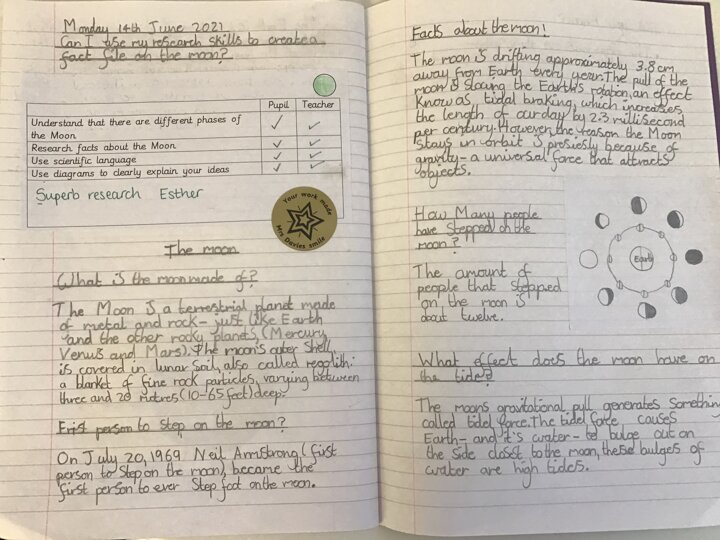 Monday 14th June 2021
Can I use my research skills to create a
fact file on the moon?
Pupil Teacher
Understand that there are different phases of
the Moon
Research facts about the Moon
Use scientific language
Use diagrams to clearly explain your ideas
Superb research Esther
Your work made
Mrs Davies smile
The moon
What is the moon made of?
The Moon is a terrestrial planet made
of metal and rock- just like Earth
and the other rocky planets (Mercury
Venus and Mars). The moon's outer shell
is covered in lunar soil, also called regolith:
a blanket of fine rock particles, varying between
three and 20 metres (10-65 feet) deep.
First person to step on the moon?
On July 20,1969 Neil Armstrong (first
person to step on the moon) became the
first person to ever step foot on the moon.
Facts about the moon!
The moon is drifting approximately 3.8cm
away from Earth every year. The pull of the
moon is slowing the Earth's rotation, an effect
know as tidal braking, which increases
the length of our day by 2.3 millisecond
per century. However, the reason the Moon
stays in orbit is presiesly because of
gravity- a universal force that attracts
objects.
How Many people
have stepped on the
moon?
The amount of
people that stepped
on the moon is
about twelve.
Earth
What effect does the moon have on
the tide?
The moons gravitational pull generates something
called tidel force. The tidel force causes
Earth- and it's water- to bulge out on
the side closst to the moon, these bulges of
water are high tides.